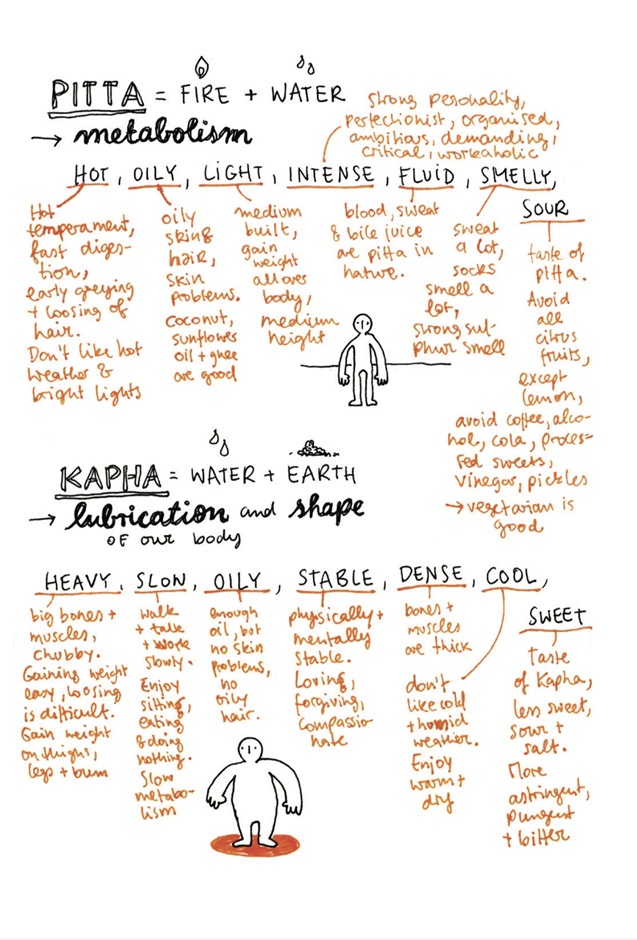 PITTA = FIRE + WATER
→ metabolism
strong personality,
perfectionist, organised,
ambitious, demanding,
critical, workaholic
HOT, OILY, LIGHT, INTENSE, FLUID, SMELLY,
SOUR
Hot
temperament,
fast diges-
tion,
early greying
+ loosing of
hair.
Don't like hot
weather &
bright lights
oily
skin &
hair,
skin
problems.
Coconut,
sunflower
oil + ghee
are good
medium
built,
gain
weight
all over
body,
medium
height
blood, sweat
& bile juice
are pitta in
nature.
sweat
a lot,
socks
smell a
lot,
strong sul-
phur smell
taste of
pitta.
Avoid
all
citrus
fruits,
except
lemon,
avoid coffee, alco-
hol, cola, proces-
sed sweets,
vinegar, pickles
→ vegetarian is
good
KAPHA = WATER + EARTH
→ lubrication and shape
OF our body
HEAVY, SLOW, OILY, STABLE, DENSE, COOL,
SWEET
big bones +
muscles,
chubby.
Gaining weight
easy, loosing
is difficult.
Gain weight
on thighs,
legs + bum
walk
+ talk
+ work
slowly.
Enjoy
sitting,
eating
& doing
nothing.
Slow
metabo-
lism
enough
oil, but
no skin
problems,
no
oily
hair.
physically +
mentally
stable.
Loving,
forgiving,
compassio-
nate
bones +
muscles
are thick
don't
like cold
+ humid
weather.
Enjoy
warm +
dry
Taste
of Kapha,
less sweet,
sour +
salt.
More
astringent,
pungent
+ bitter